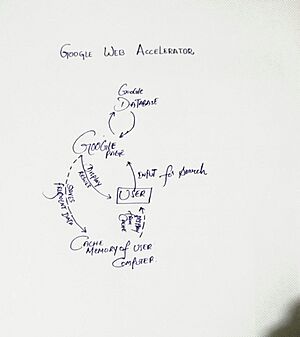 GOOGLE WEB ACCELERATOR
GOOGLE
DATABASE
GOOGLE
PAGE
INPUT for search
DISPLAY
RESULT
SAVES
FREQUENT DATA
USER
FROM
CACHE
CACHE
MEMORY OF USER
COMPUTER.